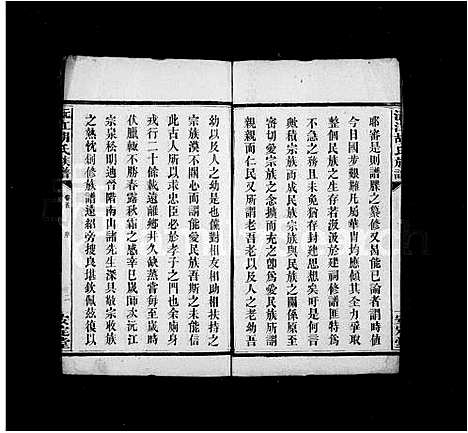 沅江胡氏族譜
耶審是則譜牒之纂修又曷能已論者謂時值
今日國步艱難凡屬華胄均應傾其全力奪爭
整個民族之生存若汲汲於建祠修譜匪特為
不急之務且未免猶存封建思想矣吁是何言
歟積宗族以成民族宗族與民族之關係原至
密切愛宗族之念擴而充之即為愛民族所謂
親親而仁民又所謂老吾老以及人之老幼吾
幼以及人之幼是也若對相友相助相扶持之
宗族漠不關心而謂能愛民族吾斯之未能信
此古人所以求忠臣必於孝子之門也余廁身
戎行二十餘載遠離鄉井久缺蒸嘗每至歲時
伏臘輒不勝春露秋霜之感辛巳歲師次沅江
宗泉松明迪晉階南山諸先生深具敬宗收族
之熱忱倡修族譜遠紹旁搜良堪欽佩茲復以
沅江胡氏族譜
卷首
序
二
安定堂